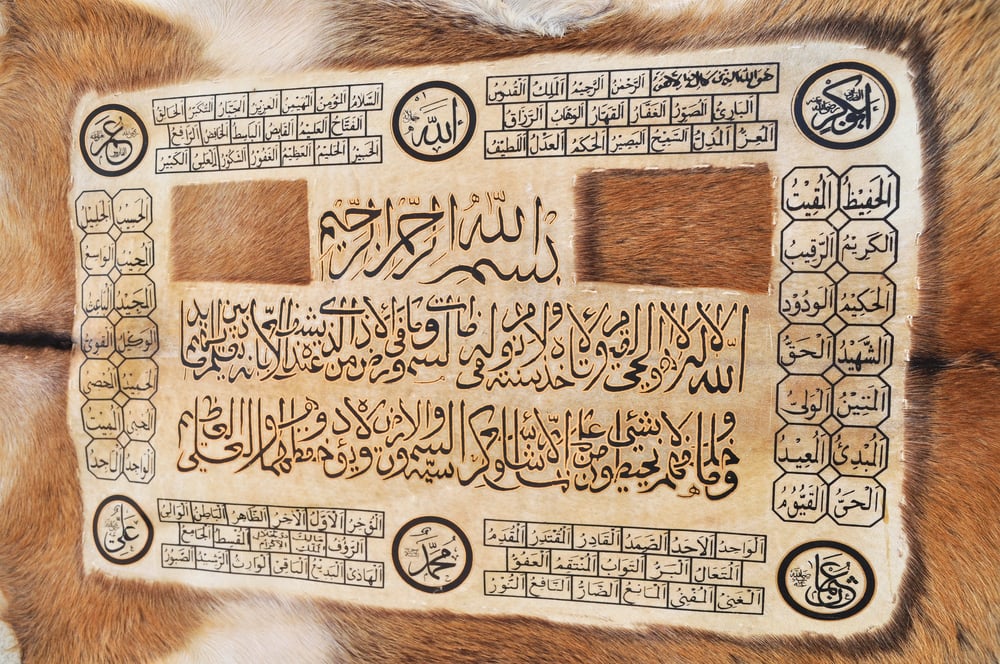 ابو بكر
هو الله الذي لا إله إلا هو الرحمن الرحيم الملك القدوس
البارئ المصور الغفار القهار الوهاب الرزاق
المعز المذل السميع البصير الحكم العدل اللطيف
الله
السلام المؤمن المهيمن العزيز الجبار المتكبر الخالق
الفتاح العليم القابض الباسط الخافض الرافع
الخبير الحليم العظيم الغفور الشكور العلي الكبير
عمر
الحفيظ المقيت
الكريم الرقيب
الحكيم الودود
الشهيد الحق
المتين الولي
المبدئ المعيد
الحي القيوم
بسم الله الرحمن الرحيم
الله لا إله إلا هو الحي القيوم لا تأخذه سنة ولا نوم له ما في السموات وما في الأرض من ذا الذي يشفع عنده إلا بإذنه يعلم ما بين أيديهم
وما خلفهم ولا يحيطون بشئ من علمه إلا بما شاء وسع كرسيه السموات والأرض ولا يؤده حفظهما وهو العلي العظيم
الحسيب الجليل
المجيب الواسع
المجيد الباعث
الوكيل القوي
الحميد المحصي
المحيي المميت
الواجد الماجد
عثمان
الواحد الاحد الصمد القادر المقتدر المقدم
المتعال البر التواب المنتقم العفو
الغني المغني المانع الضار النافع النور
محمد
المؤخر الاول الاخر الظاهر الباطن الوالي
الرؤف مالك الملك ذو الجلال والاكرام المقسط الجامع
الهادي البديع الباقي الوارث الرشيد الصبور
علي